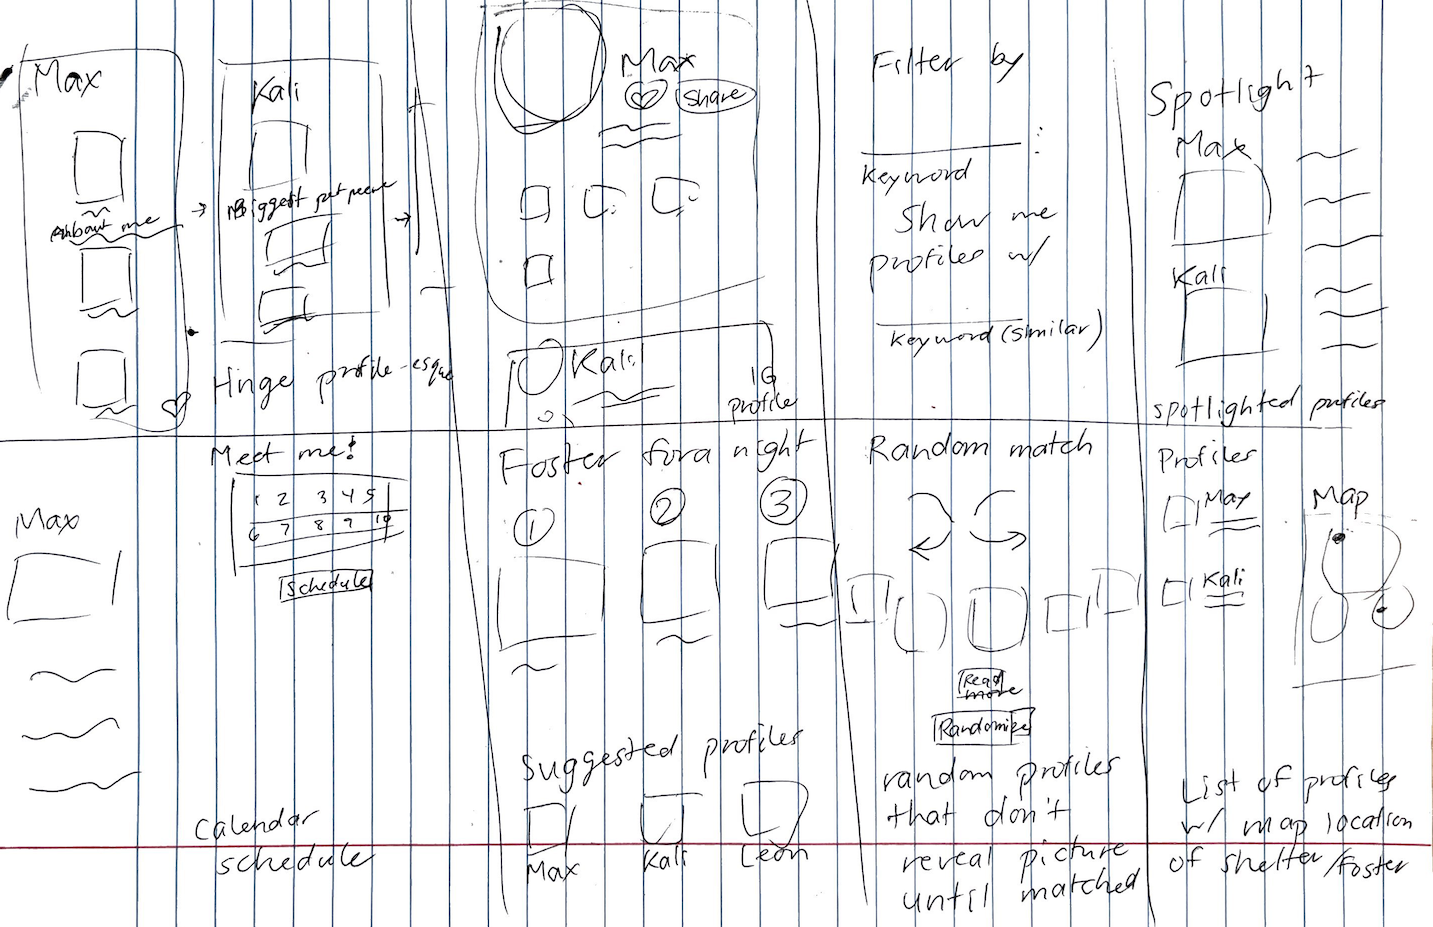 Max
About me
Kali
Biggest pet peeve
Hinge profile-esque
Max
Share
Kali
IG
profile
Filter by
Keyword
Show me
profiles w/
Keyword (similar)
Spotlight
Max
Kali
spotlighted profiles
Max
Meet me!
1 2 3 4 5
6 7 8 9 10
Schedule
Calendar
schedule
Foster for a night
1 2 3
Suggested profiles
Max Kali Leon
Random match
Read
more
Randomize
random profiles
that don't
reveal picture
until matched
Profiles
Max
Kali
Map
List of profiles
w/ map location
of shelter/foster